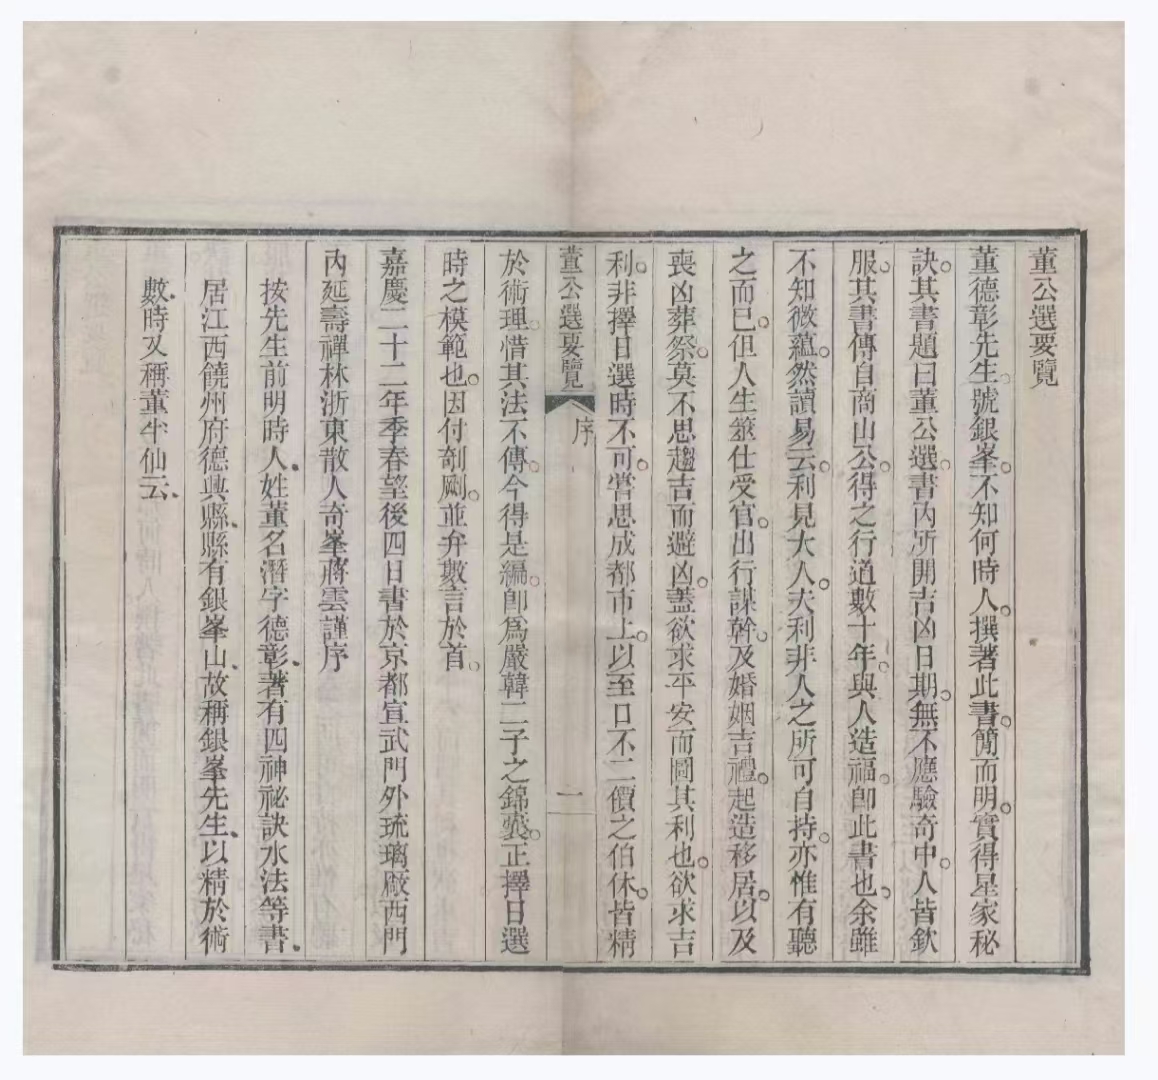 董公選要覽
董德彰先生號銀峯不知何時人撰著此書簡而明實得星家秘
訣其書題曰董公選書內所開吉凶日期無不應驗奇中人皆欽
服其書傳自商山公得之行道數十年與人造福卽此書也余雖
不知微蘊然讀易云利見大人夫利非人之所可自持亦惟有聽
之而已但人生筮仕受官出行謀幹及婚姻吉禮起造移居以及
喪凶葬祭莫不思趨吉而避凶蓋欲求平安而圖其利也欲求吉
利非擇日選時不可嘗思成都市上以至口不二價之伯休皆精
董公選要覽 序 一
於術理惜其法不傳今得是編卽爲嚴韓二子之錦囊正擇日選
時之模範也因付剞劂並弁數言於首
嘉慶二十二年季春望後四日書於京都宣武門外琉璃廠西門
內延壽禪林浙東散人奇峯蔣雲謹序
按先生前明時人姓董名潛字德彰著有四神祕訣水法等書
居江西饒州府德興縣縣有銀峯山故稱銀峯先生以精於術
數時又稱董半仙云